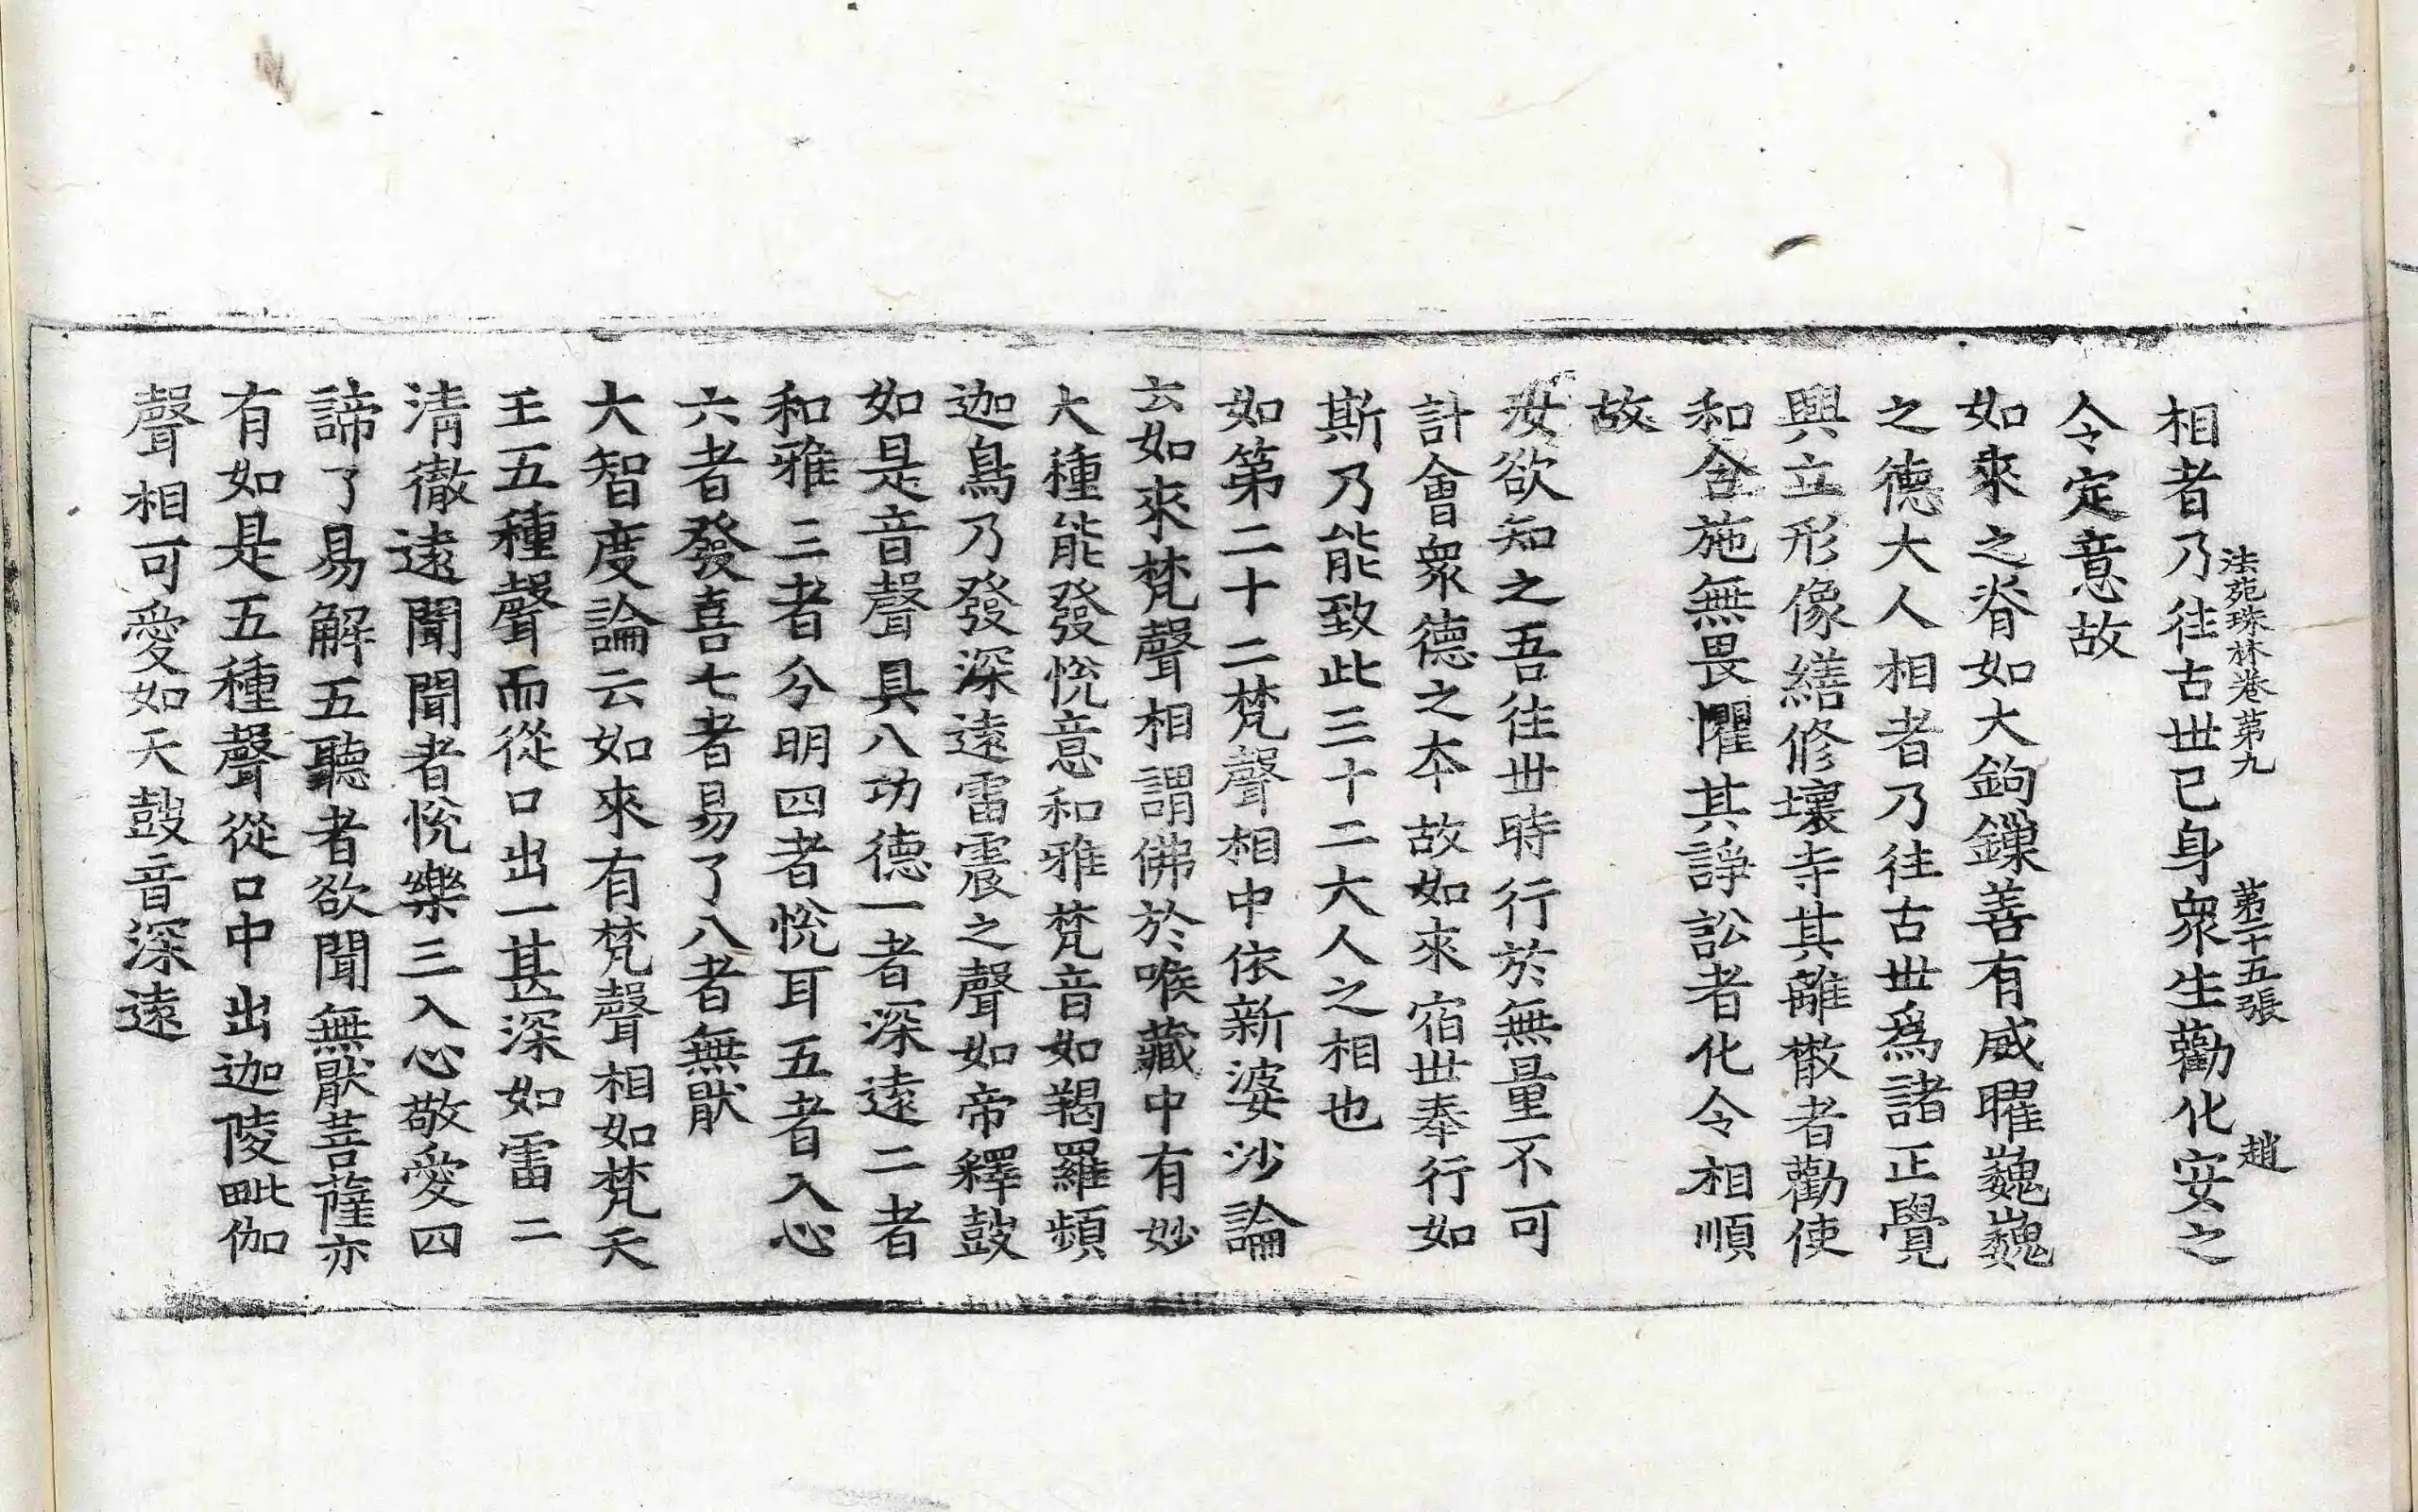 法苑珠林卷第九　第二十五張　趙
相者乃往古世己身衆生勸化安之
令定意故
如來之脊如大鉤鏁善有威曜巍巍
之德大人相者乃往古世爲諸正覺
興立形像繕修壞寺其離散者勸使
和合施無畏懼其諍訟者化令相順
故
汝欲知之吾往世時行於無量不可
計會衆德之本故如來宿世奉行如
斯乃能致此三十二大人之相也
如第二十二梵聲相中依新婆沙論
云如來梵聲相謂佛於喉藏中有妙
大種能發悅意和雅梵音如羯羅頻
迦鳥乃發深遠雷震之聲如帝釋鼓
如是音聲具八功德一者深遠二者
和雅三者分明四者悅耳五者入心
六者發喜七者易了八者無猒
大智度論云如來有梵聲相如梵天
王五種聲而從口出一甚深如雷二
清徹遠聞聞者悅樂三入心敬愛四
諦了易解五聽者欲聞無猒菩薩亦
有如是五種聲從口中出迦陵毗伽
聲相可愛如天鼓音深遠